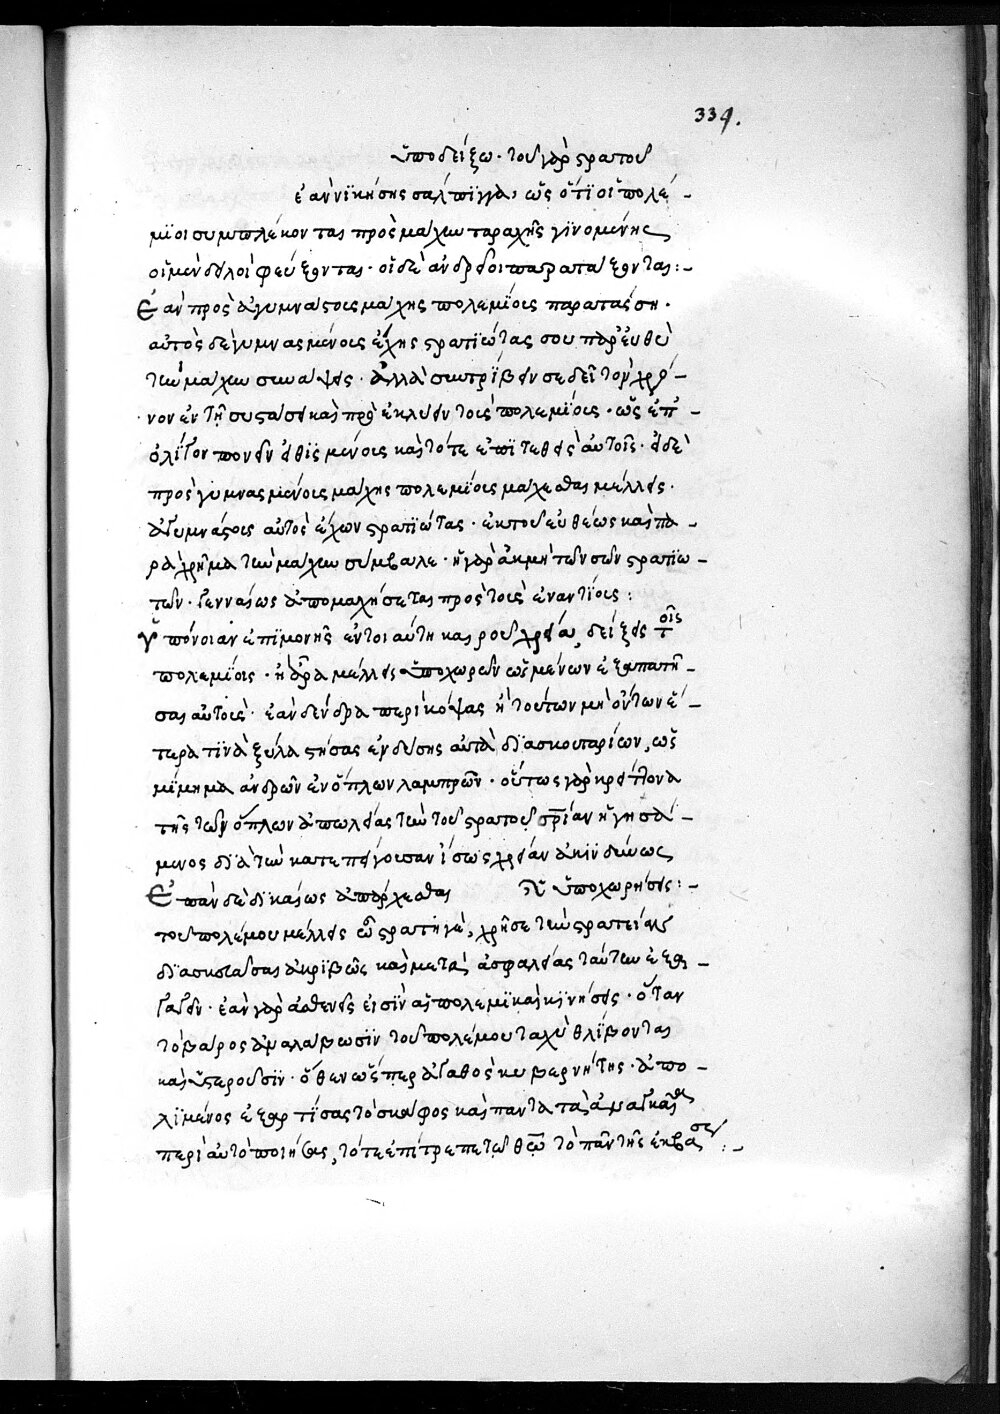 339.
ὑποδείξω · τοῦ γὰρ στρατοῦ
ἐὰν νϊκήσης σαλπϊγγα, ὡς ὅτϊ οἱ πολέ-
μϊοι συμπλέκονται πρὸς μάχην ταραχῆς γϊνομένης
οἱ μὲν δειλοὶ φεύξονται · οἱ δὲ ἀνδρεῖοι παραταξονται :-
Ἐὰν πρὸς ἀγυμνάστοις μάχης πολεμΐοις παρατάσση ·
αὐτὸς δὲ γυμνασμένοις ἔχης στρατϊώτας σου παρευθὺ
τὴν μάχην συνάψεις · ἀλλὰ συντρίβειν σε δεῖ τὸν χρό-
νον ἐν τῆ συστάσει καὶ πρὸ ἐκλύειν τοῖς πολεμΐοις · ὡς ἐπ'
ὀλίγον πονεῖν ἐθϊσμένοις καὶ τότε ἐπϊτεθεὶς αὐτοῖς · εἰ δὲ
πρὸς γυμνασμένοις μάχης πολεμΐοις μάχεσθαι μέλλεις ·
ἀγυμνάστοις αὐτὸς ἔχων στρατϊώτας · ἐκ τοῦ εὐθέως καὶ πα-
ραχρῆμα τὴν μάχην σύμβαλε · ἡ γὰρ ἀκμὴ τῶν σῶν στρατϊω-
τῶν · γενναίως ἀπομαχήσεται πρὸς τοῖς ἐναντΐοις :
Ὑπόνοιαν ἐπϊμονῆς ἐν τοιαύτη καιροῦ χρεία, δείξεις τοῖς
πολεμΐοις · ἢ ἄρα μέλλεις ὑποχωρεῖν ὡς μένων ἐξαπατῆ-
σαι αὐτοῖς · ἐὰν δένδρα περικόψας ἢ τούτων μὴ ὄντων ἕ-
τερα τϊνὰ ξύλα στήσας ἐνδύσης αὐτὰ δϊὰ σκουταρίων, ὡς
μίμημα ἀνδρῶν ἐνόπλων λαμπρῶν · οὕτως γὰρ κρείττονα
τῆς τῶν ὅπλων ἀπωλείας τὴν τοῦ στρατοῦ σρΐαν ἡγησά-
μενος δϊὰ τὴν κατεπείγουσαν ἴσως χρείαν ἀκϊνδύνως
Ἐπὰν δὲ δϊκαίως ἀπάρχεσθαι ὑποχωρήσεις :-
τοῦ πολέμου μέλλεις ὦ στρατηγὲ, χρῆσε τὴν στρατείαν
δϊασκευάσας ἀκριβῶς καὶ μετὰ ἀσφαλείας ταύτην ἐξα-
γαγεῖν · ἐὰν γὰρ ἀσθενεῖς εἰσὶν αἱ πολεμϊκαὶ κϊνήσεις · ὅταν
τὸ βάρος ἀναλάβωσϊν τοῦ πολέμου ταχὺ θλίβονται
καὶ ὑστεροῦσϊν · ὅθεν ὥσπερ ἀγαθὸς κυβερνήτης · ἀπο-
λϊμένος ἐξαρτίσας τὸ σκάφος καὶ πάντα τὰ ἀναγκαῖα
περὶ αὐτὸ ποιήσεις, τότε ἐπίτρεπε τῷ θῷ τὸ πᾶν τῆς ἐκβάσεως :-